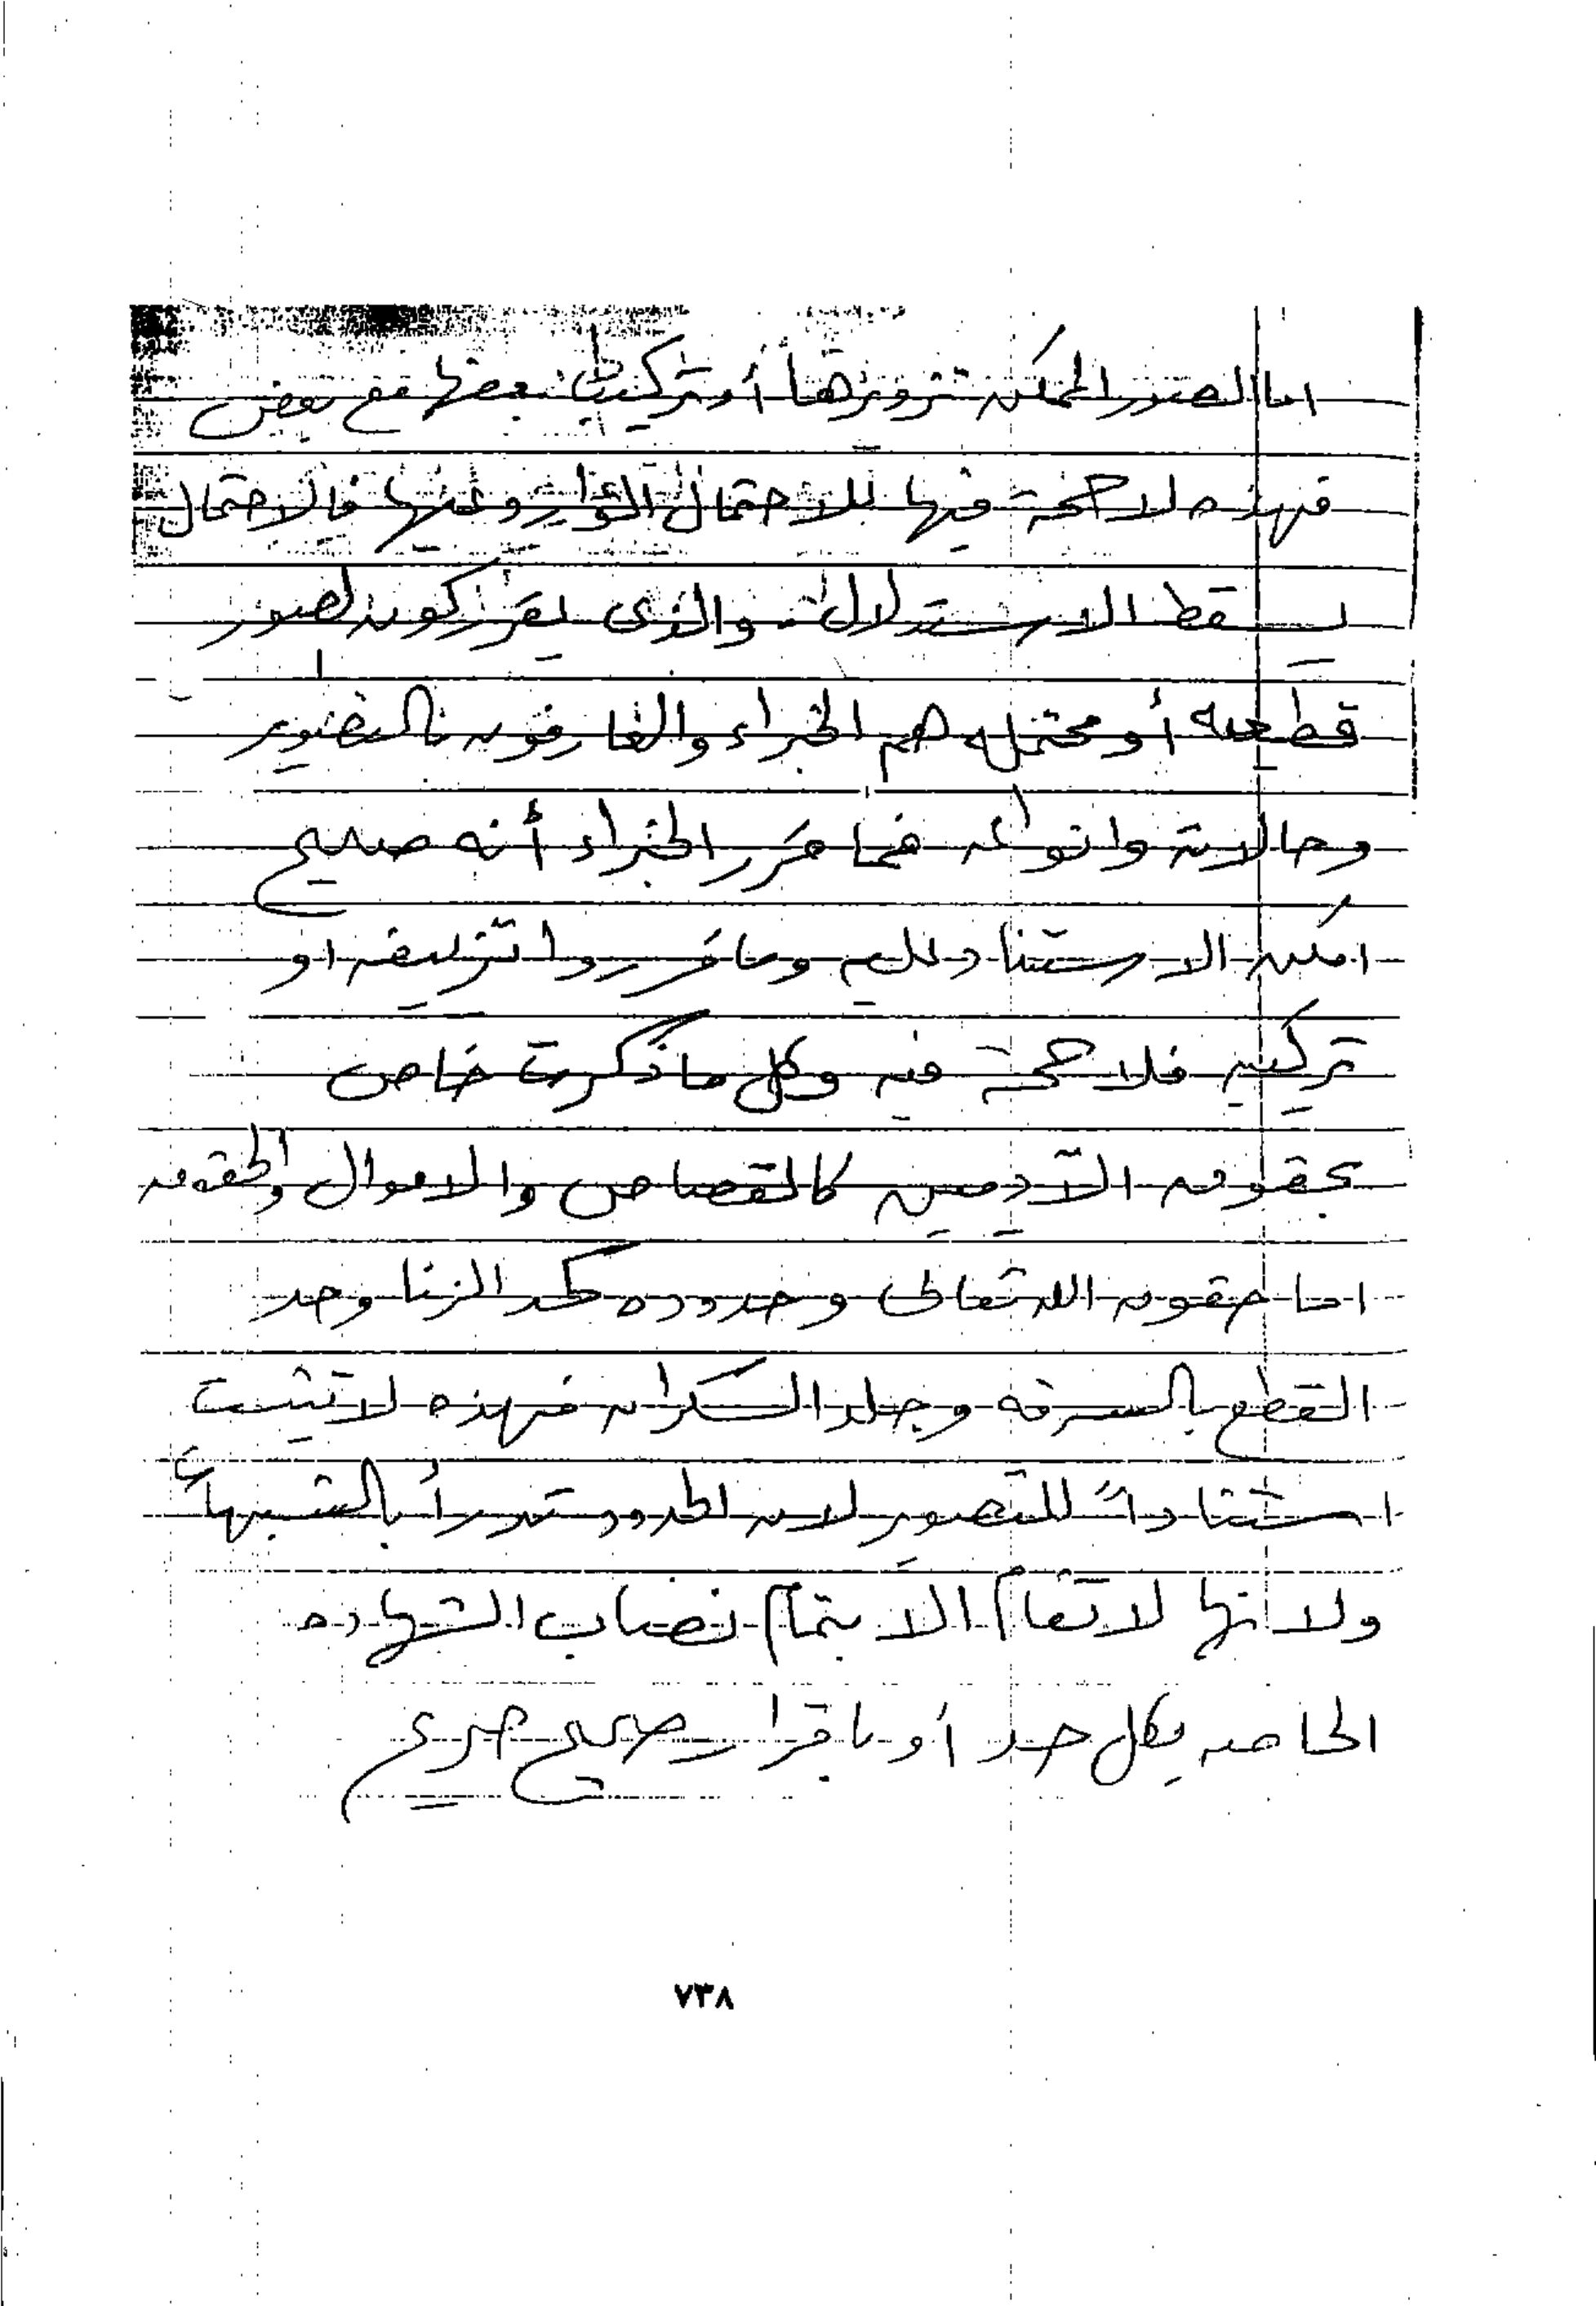 اما الصور الممكن تزويرها أو تركيب بعضها مع بعض
فهذه لا حجة فيها للاحتمال الوارد عليها فالاحتمال
يسقط الاستدلال والذى يقرر كون الصور
قطعيه أو محتمله هم الخبراء والعارفون بالتصوير
وحالاته وانواعه فما قرر الخبراء أنه صحيح
امكن الاستناد عليه وما قرروا تزييفه او
تركيبه فلا حجة فيه وكل ما ذكرت خاص
بحقوق الآدميين كالقصاص والاموال والحقوق
اما حقوق الله تعالى وحدوده كحد الزنا وحد
القطع بالسرقه وجلد السكران فهذه لا تثبت
استناداً للتصوير لان الحدود تدرأ بالشبهات
ولانها لا تقام الا بتمام نصاب الشهاده
الخاصه بكل حد أو باقرار صحيح صريح
٧٣٨